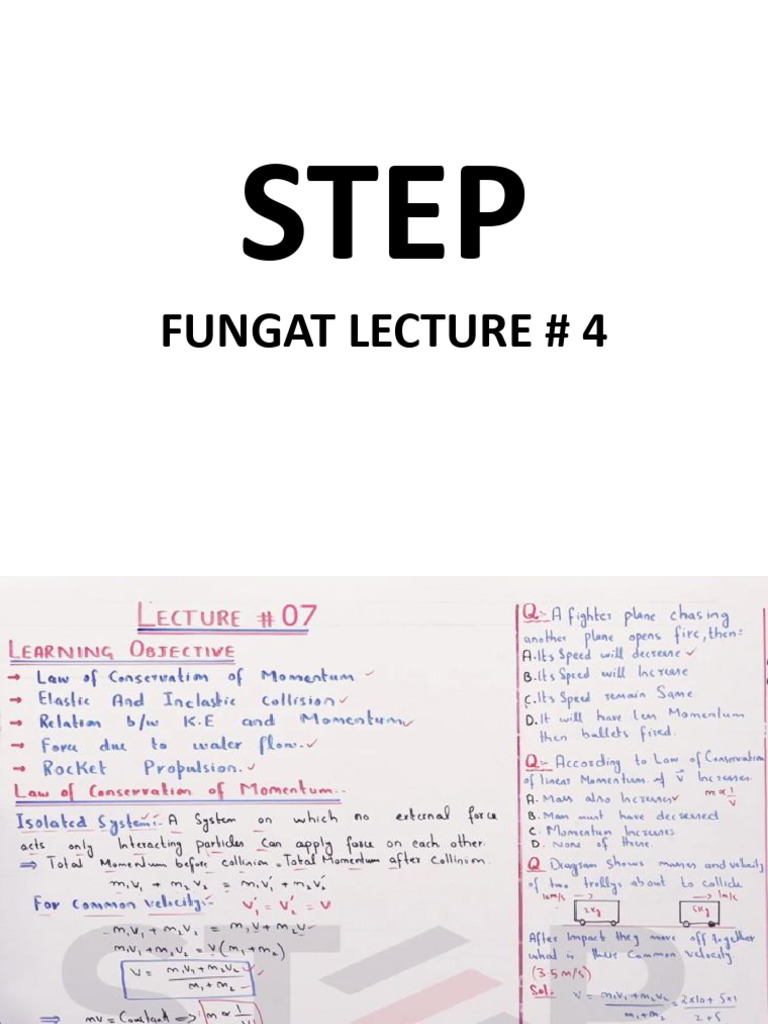 STEP
FUNGAT LECTURE # 4
LECTURE # 07
LEARNING OBJECTIVE
→ Law of Conservation of Momentum ✓
→ Elastic And Inelastic Collision ✓
→ Relation b/w K.E and Momentum ✓
→ Force due to water flow. ✓
→ Rocket Propulsion. ✓
Law of Conservation of Momentum:-
Isolated System:- A System on which no external force
acts only Interacting particles can apply force on each other.
⇒ Total Momentum before collision = Total Momentum after Collision.
m₁v₁ + m₂v₂ = m₁v₁' + m₂v₂'
For Common velocity:- v₁' = v₂' = v
m₁v₁ + m₂v₂ = m₁v + m₂v
m₁v₁ + m₂v₂ = v(m₁+m₂)
v = m₁v₁+m₂v₂ / m₁+m₂
⇒ mv = Constant ⇒ m ∝ 1/v
Q:- A fighter plane chasing
another plane opens fire, then:
A. Its Speed will decrease ✓
B. Its Speed will Increase
C. Its Speed remain Same
D. It will have less Momentum
then bullets fired.
Q:- According to Law of Conservation
of linear Momentum if v⃗ Increases
A. Mass also Increases ✓ m ∝ 1/v
B. Mass must have decreased
C. Momentum Increases
D. None of these.
Q Diagram Shows masses and velocity
of two trollys about to collide
10m/s → → 1m/s
2kg 5kg
After Impact they move off together
what is their Common velocity
(3.5 m/s)
Sol. v = m₁v₁+m₂v₂ / m₁+m₂ = 2×10+5×1 / 2+5
STEP